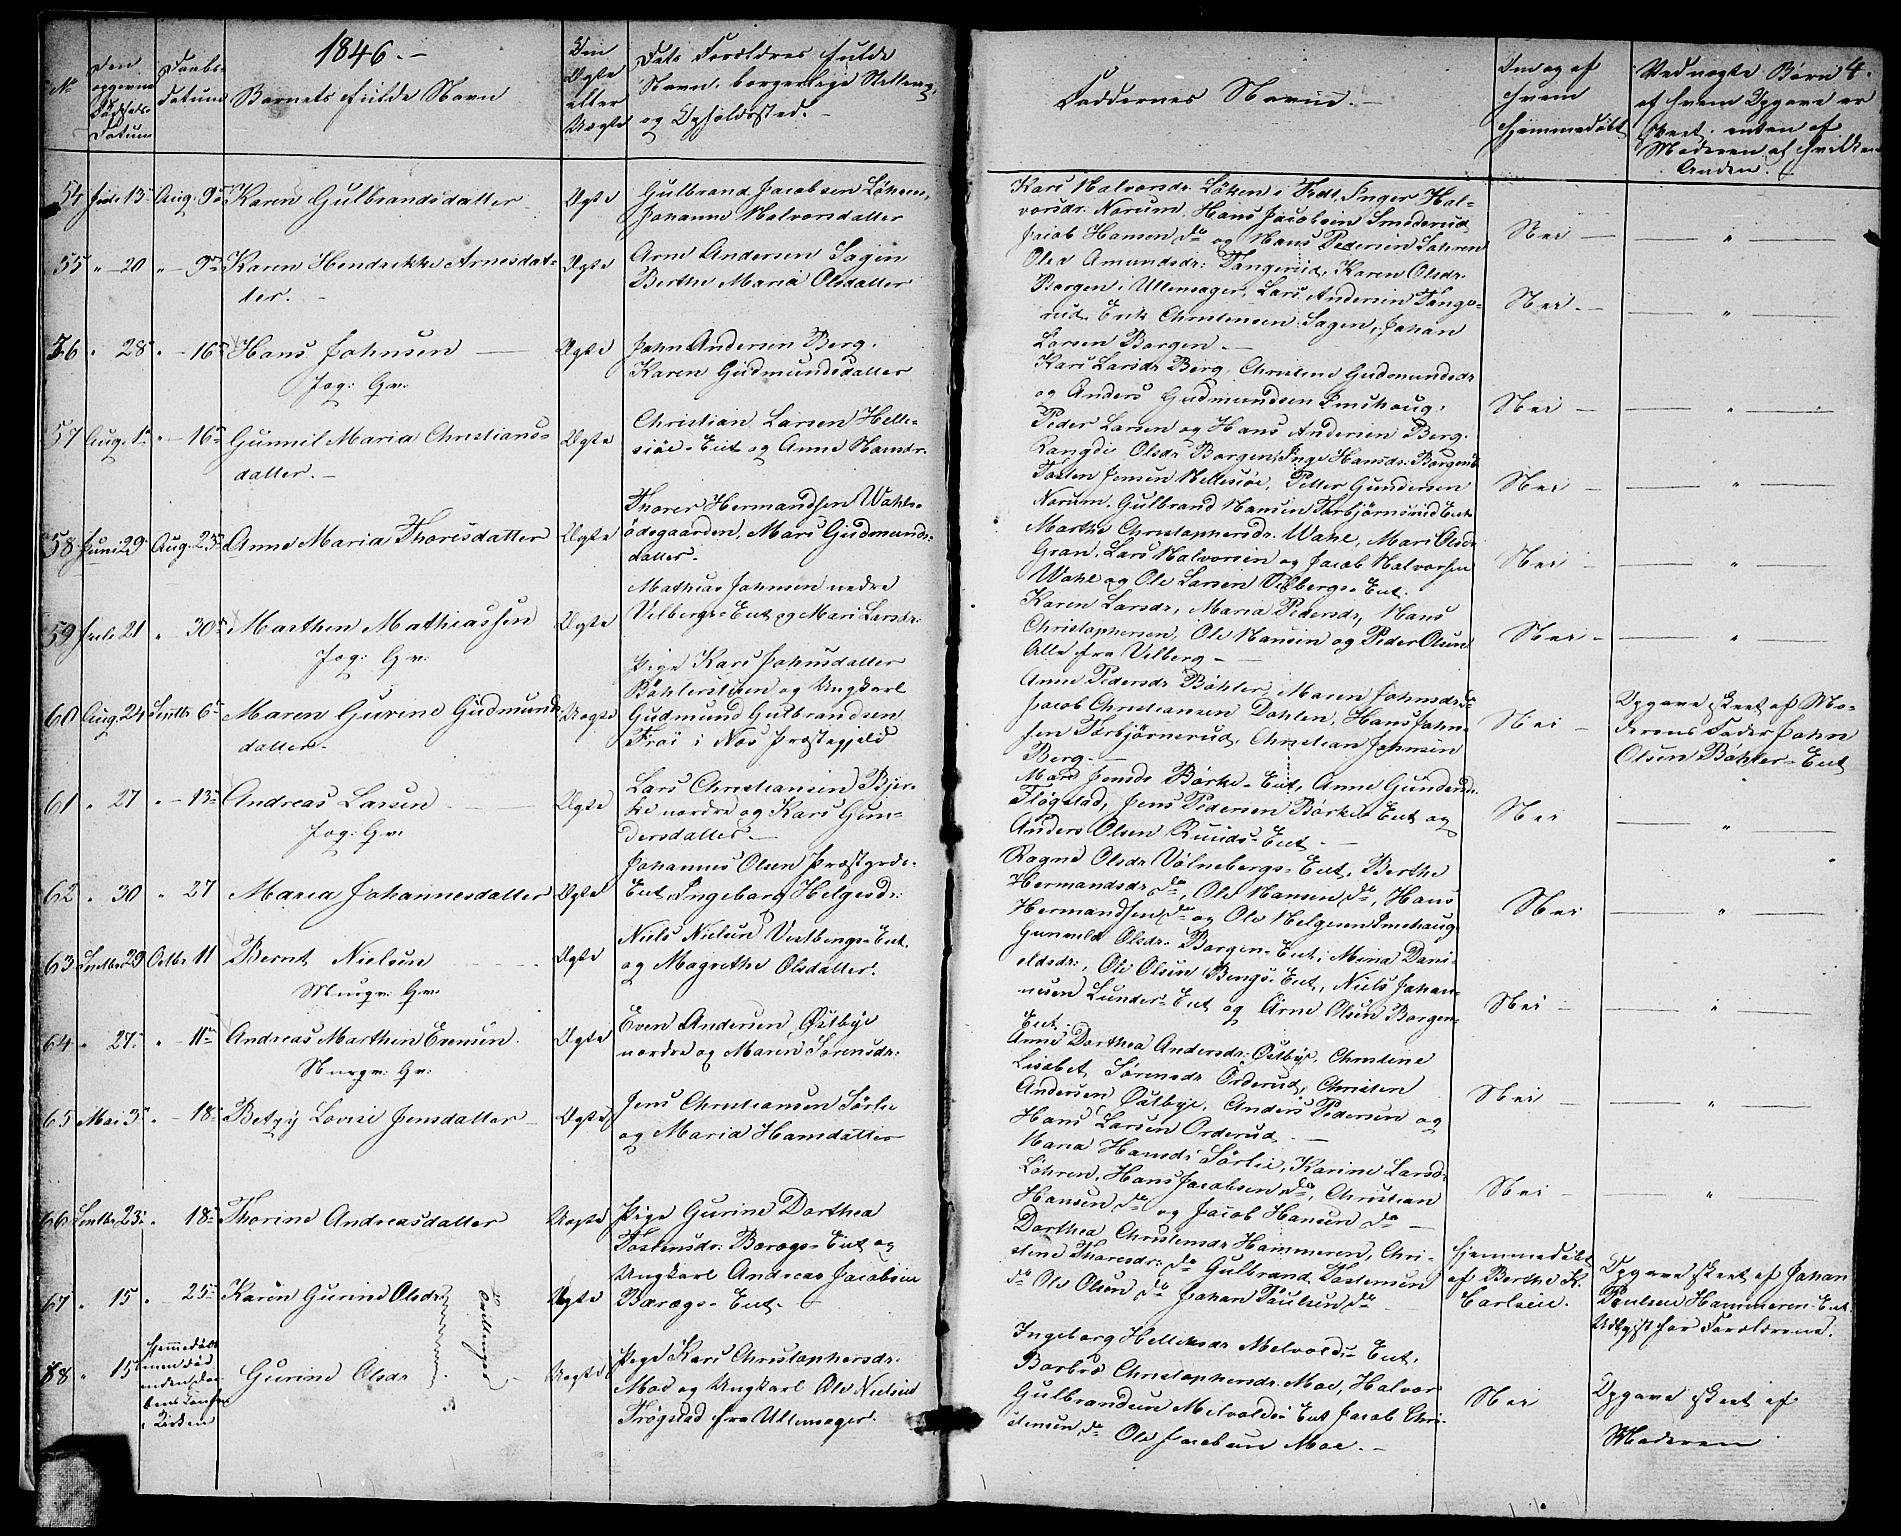 1846.-
No
Den opgivne Fødsels Datum
Daabs datum
Barnets fulde Navn
Om Ægte eller Uægte
Dets Forældres fulde
Navn, borgerlige Stilling,
og Opholdssted.-
Faddernes Navne.-
Om og af
hvem
hjemmedøbt
Ved uægte Børn 4.
af hvem Opgave er
skeet, enten af
Moderen, af hvilken
Anden.
54 Juli 13 Aug. 9de Karen Gulbrandsdatter Ægte
Gulbrand Jacobsen Løkren,
Johanne Halvorsdatter
Kari Halvorsdr. Løken i Fedt, Inger Hal-
vorsdr. Norum, Hans Jacobsen Smederud
Jacob Hansen do og Hans Pedersen Løkren
Nei -
55 " 20 " - 9de Karen Hendrikke Arnesdat-
ter. -
Ægte
Arne Andersen Sagen
Berthe Maria Olsdatter
Olea Amundsdr. Tangerud, Karen Olsdr.
Borgen i Ullensager, Lars Andersen Tange-
rud, Erik Christensen Sagen, Johan
Larsen Borgen. -
Nei. -
56 " 28 " - 16 Hans Johnsen
Jog: Gv:
Ægte
John Andersen Berg.
Karen Gudmundsdatter
Kari Larsdr Berg, Christine Gudmundsdr
og Anders Gudmundsen Imshoug,
Peder Larsen og Hans Andersen Berg.
Nei -
57 Aug. 1 " - 16 Gunnil Maria Christians-
datter. -
Ægte
Christian Larsen Helle-
siøe-Eiet og Anne Hansdr.
Rangdi Olsdr Borgen, Inge Hansdr. Borgen
Tosten Jensen Hellesiøe, Petter Gundersen
Norum, Gulbrand Hansen Thorbjørnsrud Eiet
Nei -
58 Juni 29 Aug. 23 Anne Maria Thoresdatter Ægte
Thorer Hermandsen Wahls-
ødegaarden, Mari Gudmunds-
datter.
Marthe Christophersdr. Wahl, Mari Olsdr
Gran, Lars Halvorsen og Jacob Halvorsen
Wahl og Ole Larsen Vilbergs-Eiet.
Nei -
59 Juli 21 " 30 Marthin Mathiassen
Jog: Gv:
Ægte
Mathias Johnsen nedre
Vilbergs-Eiet og Mari Larsdr.
Karen Larsdr, Maria Pedersdr, Hans
Christophersen, Ole Hansen og Peder Olsen
Alle fra Vilberg -
Nei -
60 Aug. 24 Septbr 6 Maren Gurine Gudmunds-
datter.
Uægte
Pige Kari Johnsdatter
Bøhlerseien og Ungkarl
Gudmund Gulbrandsen
Frøi i Næs Præstegjeld
Anne Pedersdr Bøhler, Maren Johnsdr do
Jacob Christiansen Dahlen, Hans John-
sen Thorbjørnsrud, Christian Johnsen
Berg. -
Nei -
Opgave skeet af Mo-
derens Fader John
Olsen Bøhler-Eiet
61 " 27 " - 13 Andreas Larsen
Jog: Gv:
Ægte
Lars Christiansen Bjer-
ke nordre og Kari Gun-
dersdatter. -
Mari Jensdr Børke-Eiet, Anne Gundersdr.
Fløgstad, Jens Pedersen Børke Eiet og
Anders Olsen Ruuds-Eiet -
Nei
62 " 30 " 27 Maria Johannesdatter Ægte
Johannes Olsen Præstgrds.
Eiet, Ingeborg Helgesdr:
Ragne Olsdr Volnebergs-Eiet, Berthe
Hermandsdr do, Ole Hansen do, Hans
Hermandsen do og Ole Helgesen Imshaug
Nei
63 Septbr 29 Octbr 11 Bernt Nielsen
Murgv. Gv:
Ægte
Niels Nielsen Vestbergs-Eiet.
og Magrethe Olsdatter.
Gunneld Olsdr. Borgen-Eiet, Mina Dani-
elsdr., Ole Olsen Bergs-Eiet, Niels Johan-
nesen Lunder-Eiet og Arne Olsen Borgen-
Eiet.
Nei -
64 " 27 " - 11 Andreas Marthin Evensen.
Nurgv: Gv:
Ægte
Even Andersen Østbye
nordre og Maren Sørensdr.
Anne Dorthea Andersdr. Østbye, Christine
Lisabet Sørensdr Orderud, Christen
Andersen Østbye, Anders Pedersen og
Hans Larsen Orderud -
Nei -
65 Mai 3 " - 18 Betzy Lovise Jensdatter Ægte
Jens Christiansen Sørlie
og Maria Hansdatter
Maria Hansdr Sørlie, Karine Larsdr
Løhren, Hans Jacobsen do, Christian
Hansen do og Jacob Hansen do
Nei -
66 Septbr 23 " 18 Thorine Andreasdatter Uægte
Pige Gurine Dorthea
Tostensdr. Borægs-Eiet og
Ungkarl Andreas Jacobsen
Borægs-Eiet. -
Dorthea Christensdr Hammeren, Chri-
stine Thoresdr: do Gulbrand Tostensen
do Ole Olsen do Johan Poulsen do
hjemmedøbt
af Berthe K.
Carlsen.
Opgave skeet af Johan
Poulsen Hammeren Eiet
Udlagt for Forældrene.
67 " 15 " - 25 Karen Gurine Olsdr Tvillinger Uægte
68 " 15 hjemmedøbt
men død
inden Daa-
bens
i Kirken
Gurine Olsdr Uægte
Pige Kari Christophersdr.
Moe og Ungkarl Ole Nielsen
Trøgstad fra Ullensager.
Ingeborg Hellesdr Melvolds-Eiet,
Barbro Christophersdr. Moe, Halvor
Gulbrandsen Melvolds Eiet Jacob Chri-
stensen do Ole Jacobsen Moe. -
Nei
Opgave skeet af
Moderen